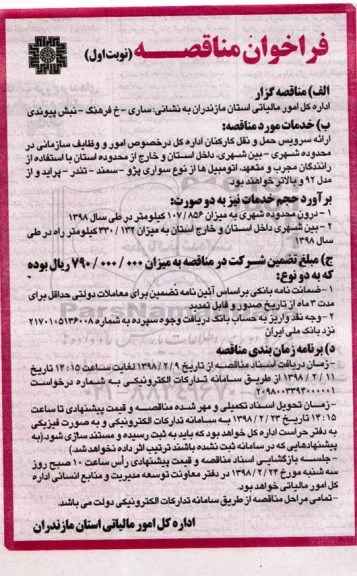 فراخوان مناقصه (نوبت اول)
الف) مناقصه گزار
اداره کل امور مالیاتی استان مازندران به نشانی: ساری - خ فرهنگ - نبش پیوندی
ب) خدمات مورد مناقصه:
ارائه سرویس حمل و نقل کارکنان اداره کل درخصوص امور و وظایف سازمانی در
محدوده شهری - بین شهری، داخل استان و خارج از محدوده استان با استفاده از
رانندگان مجرب و متعهد، اتومبیل ها از نوع سواری پژو - سمند - تندر - پراید و از
مدل ۹۲ و بالاتر خواهند بود.
برآورد حجم خدمات نیز به دو صورت:
۱ - درون محدوده شهری به میزان ۱۰۷/۸۵۶ کیلومتر در طی سال ۱۳۹۸
۲ - بین شهری داخل استان و خارج استان به میزان ۳۳۰/۱۳۲ کیلومتر راه در طی
سال ۱۳۹۸
ج) مبلغ تضمین شرکت در مناقصه به میزان ۷۹۰/۰۰۰/۰۰۰ ریال بوده
که به دو نوع:
۱ - ضمانت نامه بانکی براساس آئین نامه تضمین برای معاملات دولتی حداقل برای
مدت ۳ ماه از تاریخ صدور و قابل تمدید
۲ - وجه نقد واریز به حساب بانک دریافت وجوه سپرده به شماره ۲۱۷۰۱۰۵۱۳۶۰۰۸
نزد بانک ملی ایران
د) برنامه زمان بندی مناقصه
- زمان دریافت اسناد مناقصه از تاریخ ۱۳۹۸/۲/۹ لغایت ساعت ۱۴:۱۵ تاریخ
۱۳۹۸/۲/۱۱ از طریق سامانه تدارکات الکترونیکی به شماره درخواست
۲۰۹۸۰۰۳۳۹۴۰۰۰۰۰۱
- زمان تحویل اسناد تکمیلی و مهر شده مناقصه و قیمت پیشنهادی تا ساعت
۱۴:۱۵ تاریخ ۱۳۹۸/۲/۲۳ به سامانه تدارکات الکترونیکی و به صورت فیزیکی
به دفتر حراست اداره کل خواهد بود که باید به ثبت رسیده و مستند سازی شود (به
پیشنهادهایی که در سامانه ثبت نشده باشند ترتیب اثر داده نخواهد شد.)
- جلسه بازگشایی اسناد مناقصه و قیمت پیشنهادی رأس ساعت ۱۰ صبح روز
سه شنبه مورخ ۱۳۹۸/۲/۲۴ در دفتر معاونت توسعه مدیریت و منابع انسانی اداره
کل امور مالیاتی خواهد بود.
- تمامی مراحل مناقصه از طریق سامانه تدارکات الکترونیکی دولت می باشد.
اداره کل امور مالیاتی استان مازندران